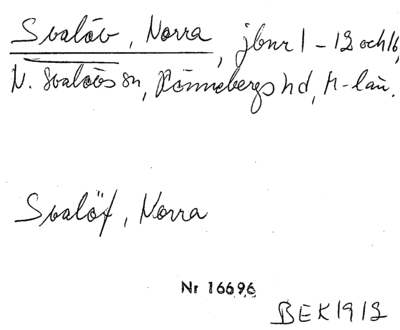 Svalöv, Norra, jbnr 1 - 12 och 16,
N. Svalövs sn, Rönnebergs hd, M-län.
Svalöf, Norra
Nr 16696
BEK 1912